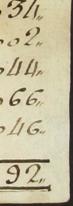 34„
02„
044„
066„
046„
92„